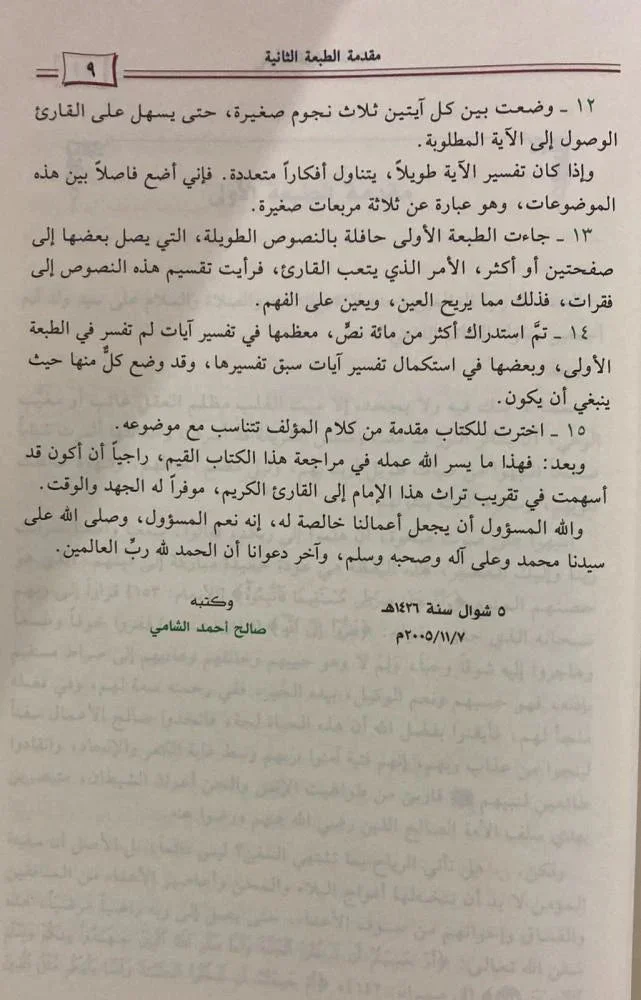 مقدمة الطبعة الثانية
٩
١٢ ـ وضعت بين كل آيتين ثلاث نجوم صغيرة، حتى يسهل على القارئ
الوصول إلى الآية المطلوبة.
وإذا كان تفسير الآية طويلاً، يتناول أفكاراً متعددة. فإني أضع فاصلاً بين هذه
الموضوعات، وهو عبارة عن ثلاثة مربعات صغيرة.
١٣ ـ جاءت الطبعة الأولى حافلة بالنصوص الطويلة، التي يصل بعضها إلى
صفحتين أو أكثر، الأمر الذي يتعب القارئ، فرأيت تقسيم هذه النصوص إلى
فقرات، فذلك مما يريح العين، ويعين على الفهم.
١٤ ـ تمَّ استدراك أكثر من مائة نصٍّ، معظمها في تفسير آيات لم تفسر في الطبعة
الأولى، وبعضها في استكمال تفسير آيات سبق تفسيرها، وقد وضع كلٌّ منها حيث
ينبغي أن يكون.
١٥ ـ اخترت للكتاب مقدمة من كلام المؤلف تتناسب مع موضوعه.
وبعد: فهذا ما يسر الله عمله في مراجعة هذا الكتاب القيم، راجياً أن أكون قد
أسهمت في تقريب تراث هذا الإمام إلى القارئ الكريم، موفراً له الجهد والوقت.
والله المسؤول أن يجعل أعمالنا خالصة له، إنه نعم المسؤول، وصلى الله على
سيدنا محمد وعلى آله وصحبه وسلم، وآخر دعوانا أن الحمد لله ربِّ العالمين.
٥ شوال سنة ١٤٢٦هـ
وكتبه
٢٠٠٥/١١/٧م
صالح أحمد الشامي